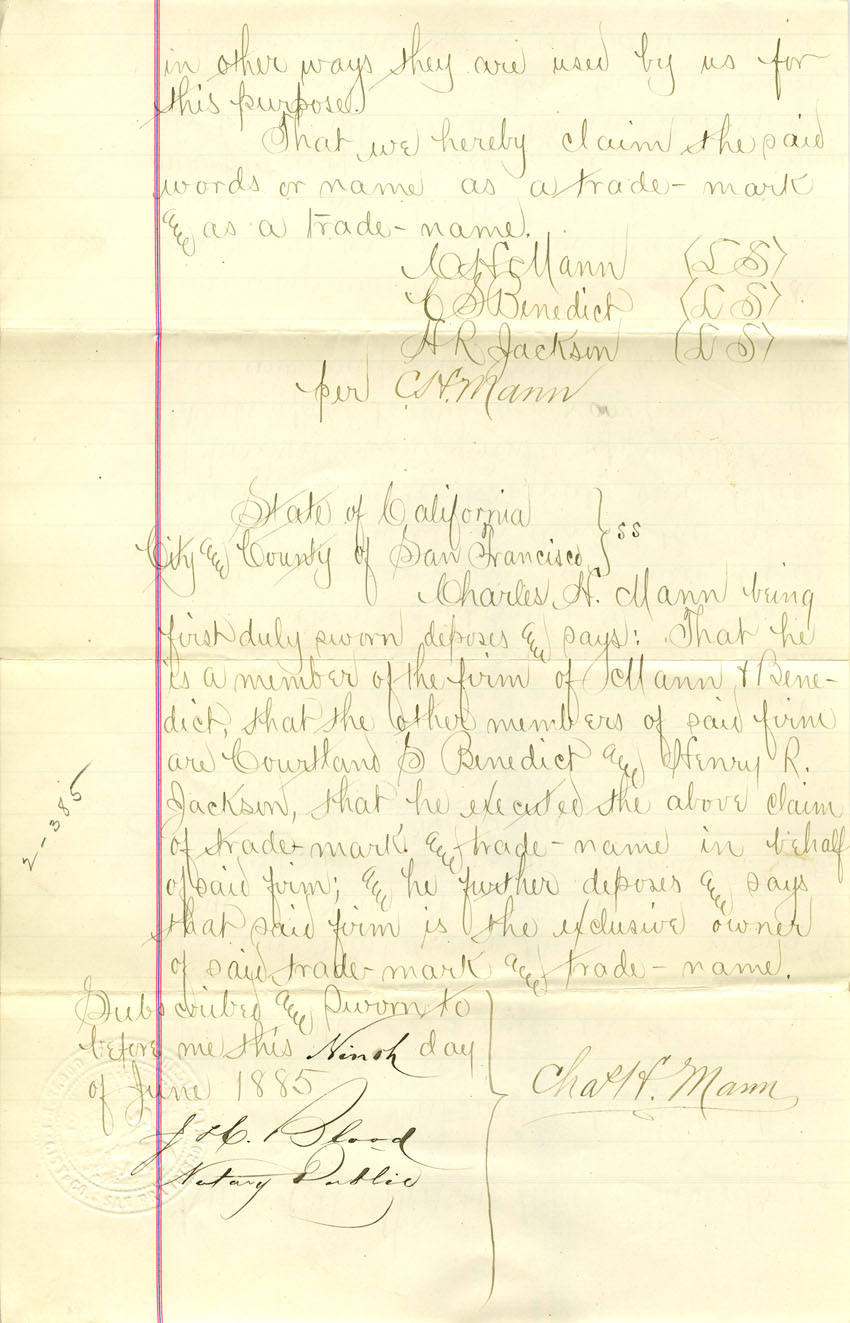 in other ways they are used by us for
this purpose.
That we hereby claim the said
words or name as a trade-mark
and as a trade-name.
C H Mann (L S)
C S Benedict (L S)
H R Jackson (L S)
per C.H. Mann
State of California
City and County of San Francisco } ss
Charles H. Mann being
first duly sworn deposes and says: That he
is a member of the firm of Mann & Bene-
dict, that the other members of said firm
are Courtland S Benedict and Henry R.
Jackson, that he executed the above claim
of trade-mark and trade-name in behalf
of said firm; and he further deposes and says
that said firm is the exclusive owner
of said trade-mark and trade-name.
2-385
Subscribed and Sworn to
before me this Ninth day
of June 1885
Chas H. Mann
Blood
Notary Public